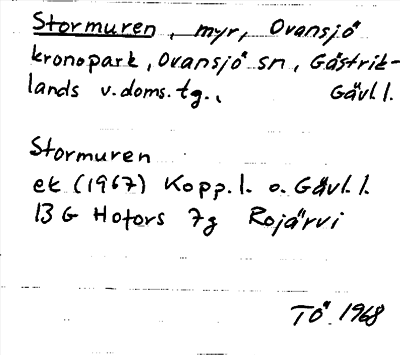 Stormuren, myr, Ovansjö
kronopark, Ovansjö sn, Gästrik-
lands v.doms.tg., Gävl.l.
Stormuren
ek (1967) Kopp.l. o. Gävl.l.
13 G Hofors 7g Rojärvi
TÖ 1968